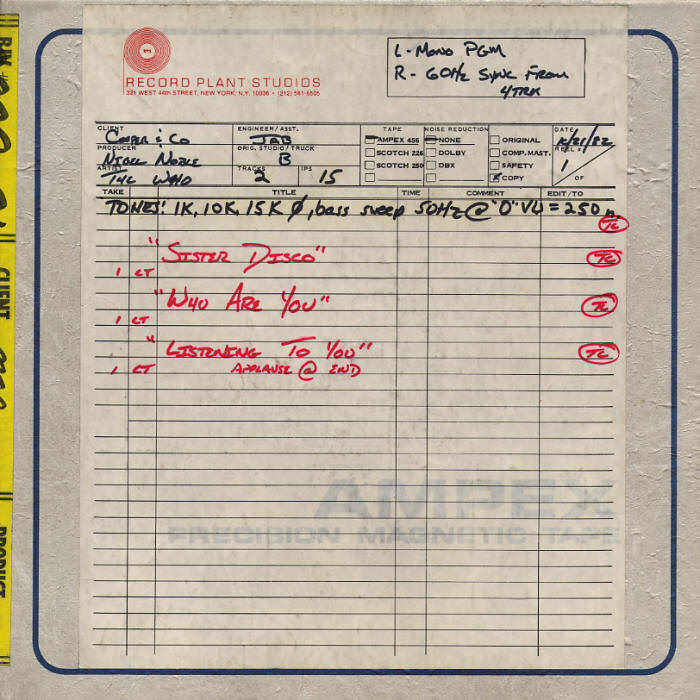 L - Mono PGM
R - 60Hz SYNC FROM
4TRK
RECORD PLANT STUDIOS
321 WEST 44th STREET, NEW YORK, N.Y. 10036 • (212) 581-6505
CLIENT
Cooper & Co
ENGINEER/ASST.
TAPE
NOISE REDUCTION
DATE
AMPEX 456
NONE
ORIGINAL
PRODUCER
Nigel Noble
ORIG. STUDIO/TRUCK
B
SCOTCH 226
DOLBY
COMP. MAST.
REEL #
1
OF
SCOTCH 250
DBX
SAFETY
ARTIST
THE WHO
TRACKS
2
IPS
15
COPY
TAKE
TITLE
TIME
COMMENT
EDIT/TO
TONES: 1K, 10K, 15K Ø, bass sweep 50Hz @ "0" VU = 250 n
TC
"SISTER DISCO"
TC
1 CT
"WHO ARE YOU"
TC
1 CT
"LISTENING TO YOU"
TC
1 CT
APPLAUSE @ END
AMPEX
PRECISION MAGNETIC TAPE
CLIENT
PRODUCT